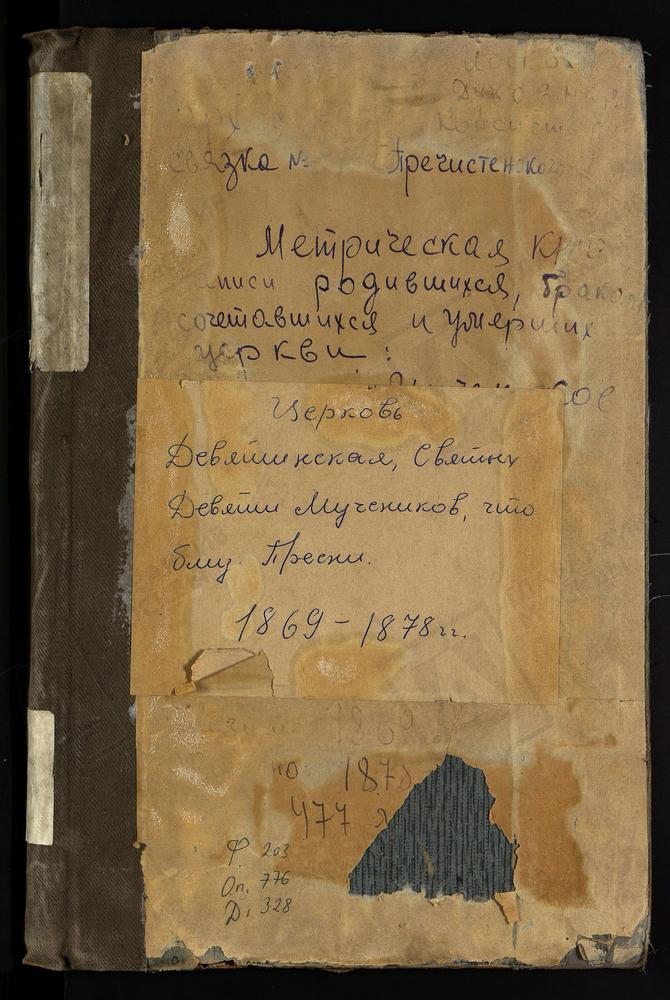 Связка № Пречистенско
Метрическая
родившихся,
сочетавшихся и умерших
церкви:
Церковь
Девятинская, Святых
Девяти Мучеников, что
близ Пресни.
1869 - 1878 гг.
1869
по 187
477 л
Ф. 203
Оп. 776
Д. 328